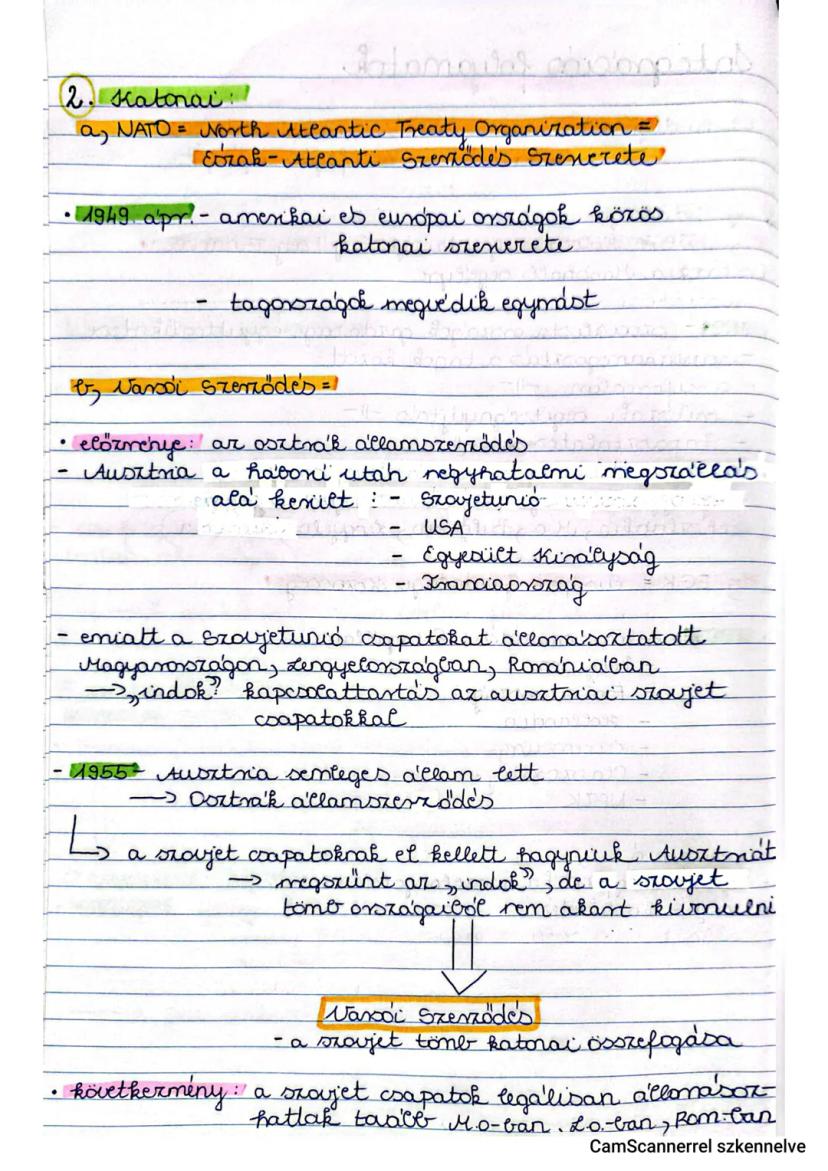 2. Katonai:
a, NATO = North Atlantic Treaty Organization =
Észak-Atlanti Szerződés Szervezete
• 1949. ápr. - amerikai és európai országok közös
katonai szervezete
- tagországok megvédik egymást
b, Varsói Szerződés =
• előzménye: az osztrák államszerződés
- Ausztria a háború után négyhatalmi megszállás
alá került : - Szovjetunió
- USA
- Egyesült Királyság
- Franciaország
- emiatt a Szovjetunió csapatokat állomásoztatott
Magyarországon, Lengyelországban, Romániában
→ „indok” kapcsolattartás az ausztriai szovjet
csapatokkal
- 1955 - Ausztria semleges állam lett
→ Osztrák államszerződés
↳ a szovjet csapatoknak el kellett hagyniuk Ausztriát
→ megszűnt az „indok”, de a szovjet
tömb országaiból nem akart kivonulni
Varsói Szerződés
- a szovjet tömb katonai összefogása
• következmény: a szovjet csapatok legálisan állomásoz-
hattak tovább M.o-ban. Lo.-ban, Rom-ban
CamScannerrel szkennelve